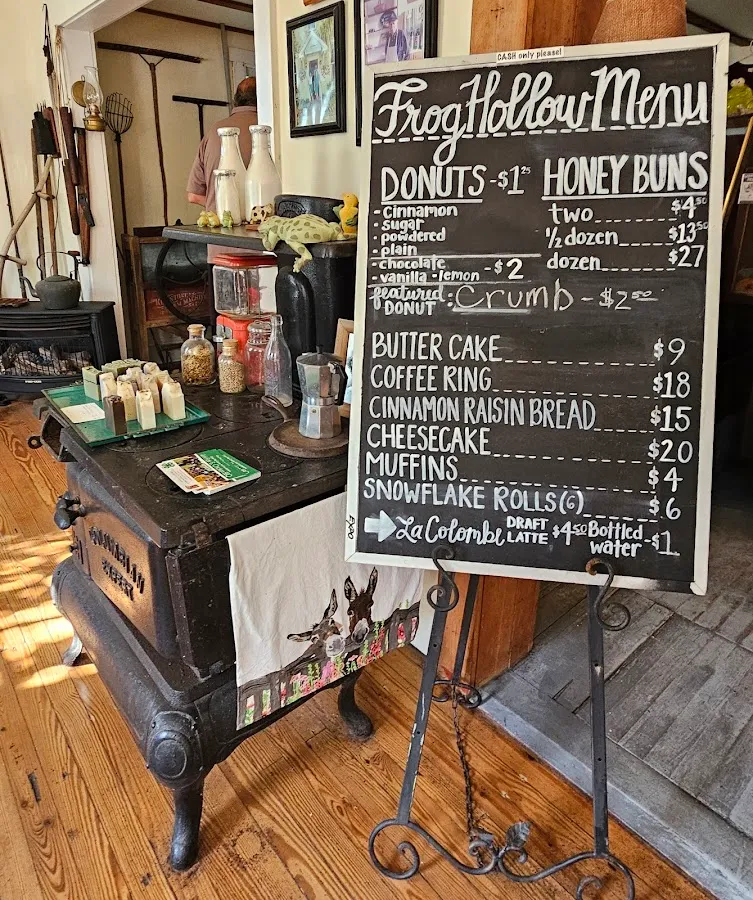 CASH only please!
Frog Hollow Menu
DONUTS - $1.25
- cinnamon
- sugar
- powdered
- plain
- chocolate
- vanilla - lemon - $2
featured DONUT: Crumb - $2.50
HONEY BUNS
two $4.50
1/2 dozen $13.50
dozen $27
BUTTER CAKE $9
COFFEE RING $18
CINNAMON RAISIN BREAD $15
CHEESECAKE $20
MUFFINS $4
SNOWFLAKE ROLLS (6) $6
→ La Colombe DRAFT LATTE $4.50 Bottled water - $1
EXPO